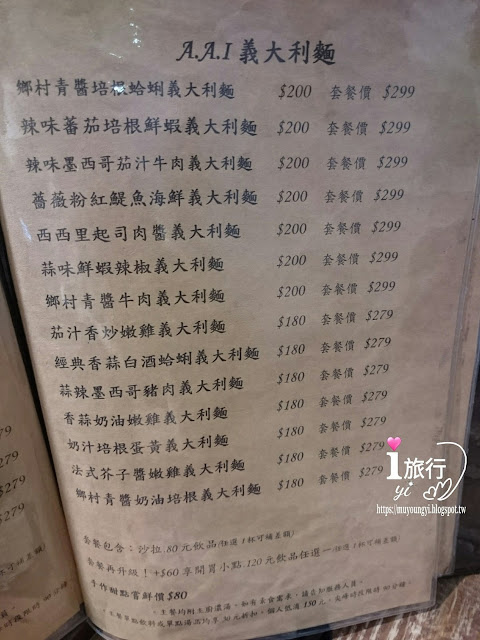 A.A.I 義大利麵
鄉村青醬培根蛤蜊義大利麵 $200 套餐價 $299
辣味蕃茄培根鮮蝦義大利麵 $200 套餐價 $299
辣味墨西哥茄汁牛肉義大利麵 $200 套餐價 $299
薔薇粉紅鯷魚海鮮義大利麵 $200 套餐價 $299
西西里起司肉醬義大利麵 $200 套餐價 $299
蒜味鮮蝦辣椒義大利麵 $200 套餐價 $299
鄉村青醬牛肉義大利麵 $200 套餐價 $299
茄汁香炒嫩雞義大利麵 $180 套餐價 $279
經典香蒜白酒蛤蜊義大利麵 $180 套餐價 $279
蒜辣墨西哥豬肉義大利麵 $180 套餐價 $279
香蒜奶油嫩雞義大利麵 $180 套餐價 $279
奶汁培根蛋黃義大利麵 $180 套餐價 $279
法式芥子醬嫩雞義大利麵 $180 套餐價 $279
鄉村青醬奶油培根義大利麵 $180 套餐價 $279
套餐包含：沙拉.80元飲品(任選1杯可補差額)
套餐再升級！+$60享開胃小點.120元飲品任選一(任選1杯可補差額)
手作甜點嘗鮮價$80
279
$279
$279
$279
i旅行
yi
https://muyoungyi.blogspot.tw